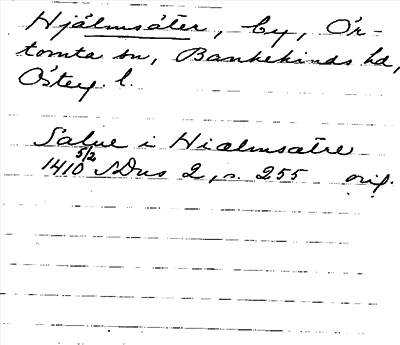 Hjälmsäter, by, Ör-
tomta sn, Bankekinds hd,
Östeg. l.
Salue i Hiælmsætre
1410 5/2 SDns 2, s. 255 orig.